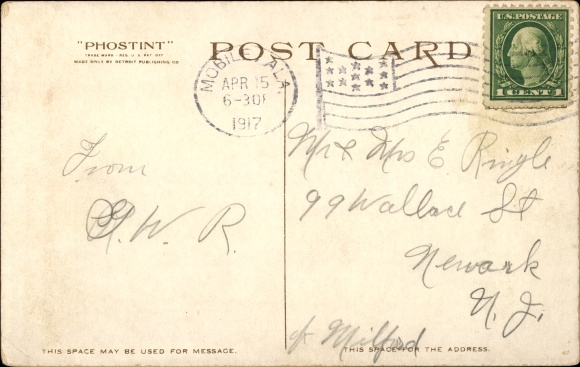 "PHOSTINT"
TRADE MARK - REG. U.S. PAT. OFF.
MADE ONLY BY DETROIT PUBLISHING CO.
POST CARD
MOBILE, ALA.
APR 15
6-30P
1917
U.S. POSTAGE
1 CENT 1
From
W. R.
Mr & Mrs E. Ringle
99 Wallace St
Newark
N. J.
Milford
THIS SPACE MAY BE USED FOR MESSAGE.
THIS SPACE FOR THE ADDRESS.